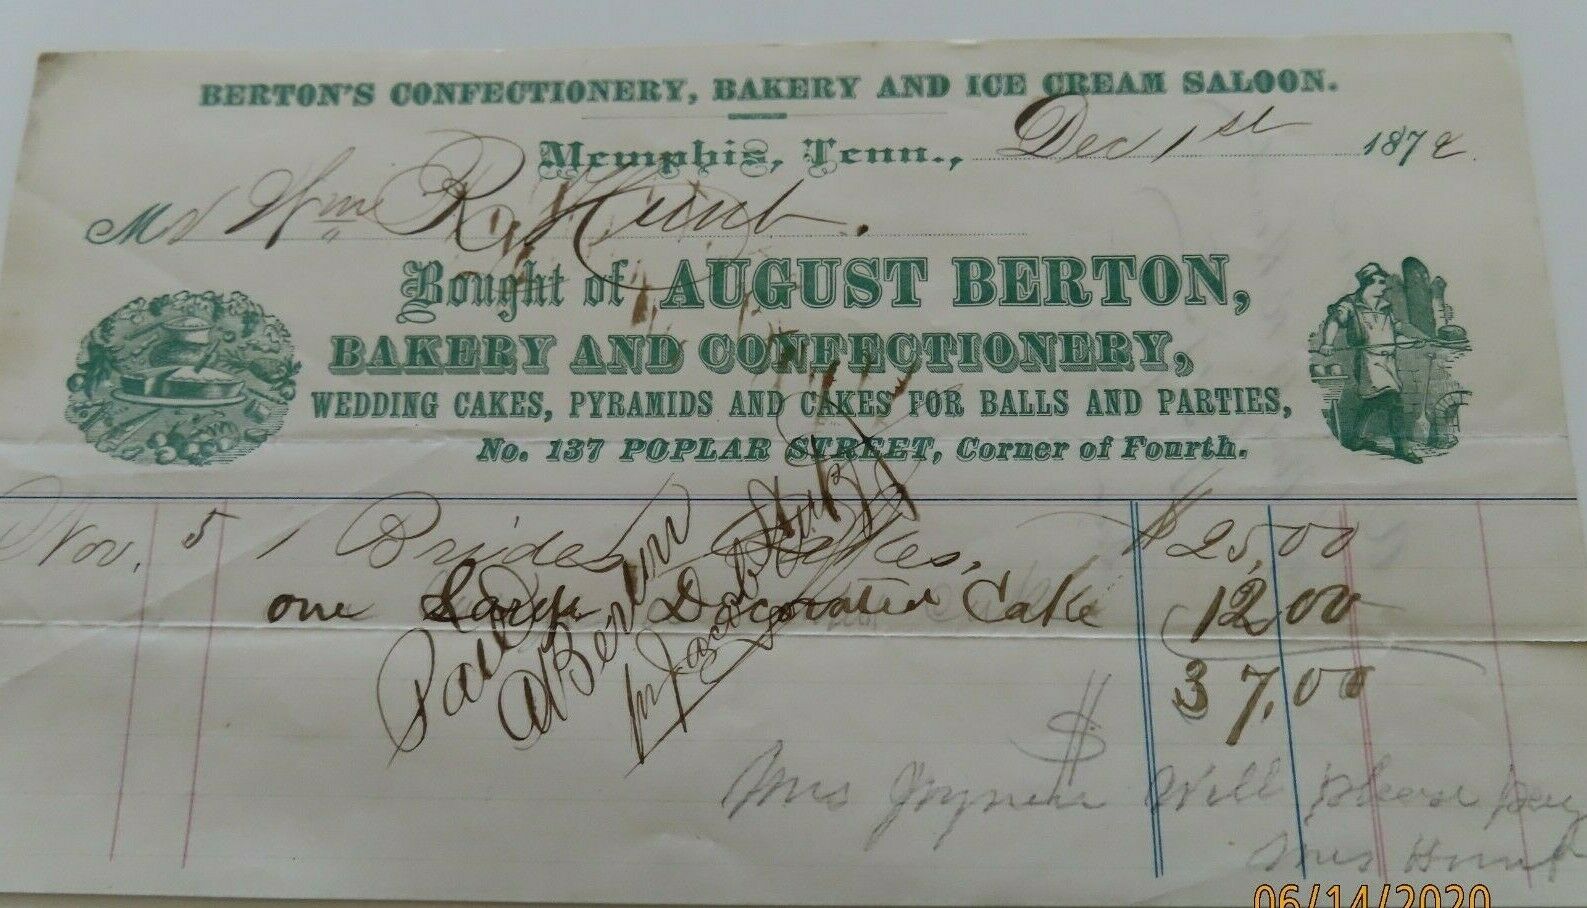 BERTON'S CONFECTIONERY, BAKERY AND ICE CREAM SALOON.
Memphis, Tenn., Dec 1st 1872
Mr Wm R. Hunt.
Bought of AUGUST BERTON,
BAKERY AND CONFECTIONERY,
WEDDING CAKES, PYRAMIDS AND CAKES FOR BALLS AND PARTIES,
No. 137 POPLAR STREET, Corner of Fourth.
Nov. 5 1 Brides Cakes, $25,00
one Large Decorated Cake 12,00
37,00
Paid
A Berton
Jacob
$
Mrs Will please pay
Mrs Hunt
06/14/2020